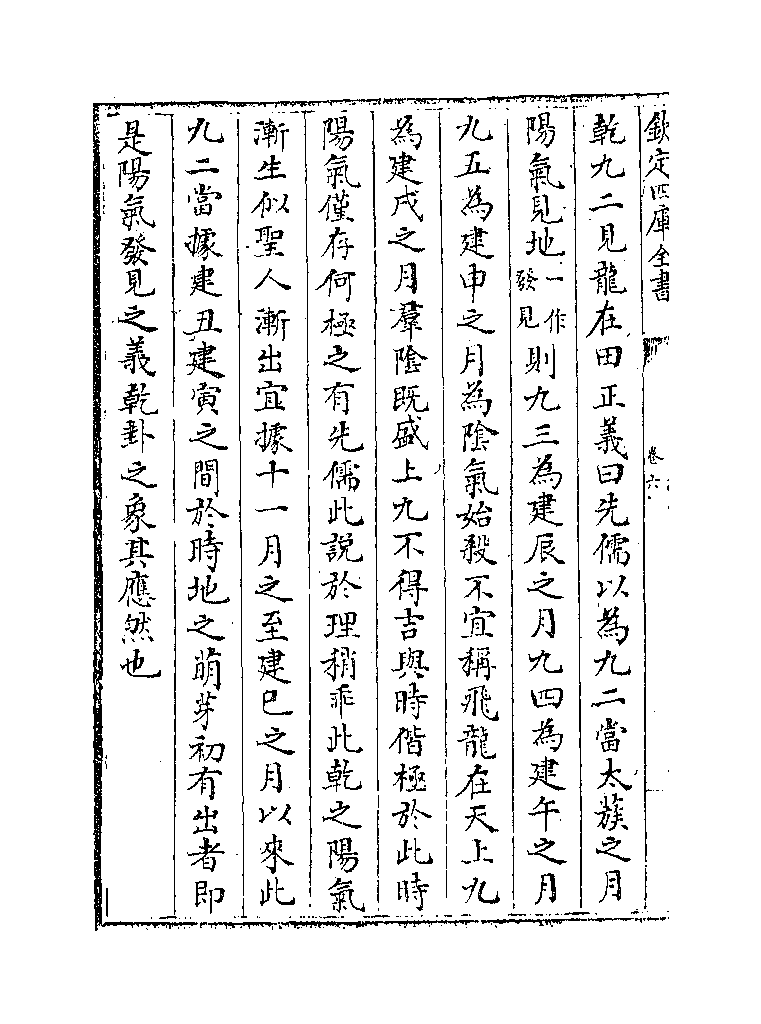 欽定四庫全書
卷六
乾九二見龍在田正義曰先儒以為九二當太蔟之月
陽氣見地一作發見則九三為建辰之月九四為建午之月
九五為建申之月為陰氣始殺不宜稱飛龍在天上九
為建戌之月羣陰既盛上九不得言與時偕極於此時
陽氣僅存何極之有先儒此說於理稍乖此乾之陽氣
漸生似聖人漸出宜據十一月之至建巳之月以來此
九二當據建丑建寅之間於時地之萌芽初有出者即
是陽氣發見之義乾卦之象其應然也